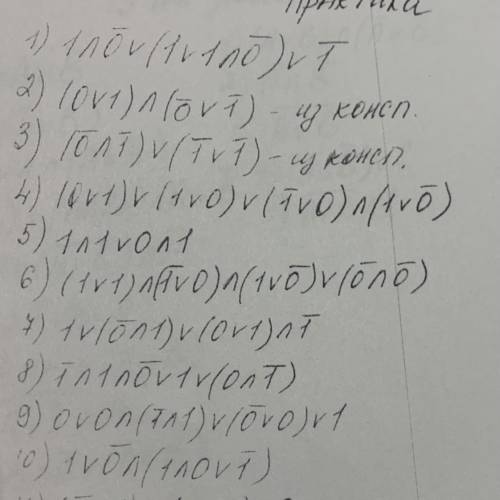 Практика
1) 1∧0̅∨(1∨1∧0̅)∨1̅
2) (0∨1)∧(0̅∨1̅) - из консп.
3) (0̅∧1̅)∨(1̅∨1̅) - из консп.
4) (0∨1)∨(1∨0)∨(1̅∨0)∧(1∨0̅)
5) 1∧1∨0∧1
6) (1∨1)∧(1̅∨0)∧(1∨0̅)∨(0̅∧0̅)
7) 1∨(0̅∧1)∨(0∨1)∧1̅
8) 1̅∧1∧0̅∨1∨(0∧1̅)
9) 0∨0∧(1̅∧1)∨(0̅∨0)∨1
10) 1∨0̅∧(1∧0∨1̅)